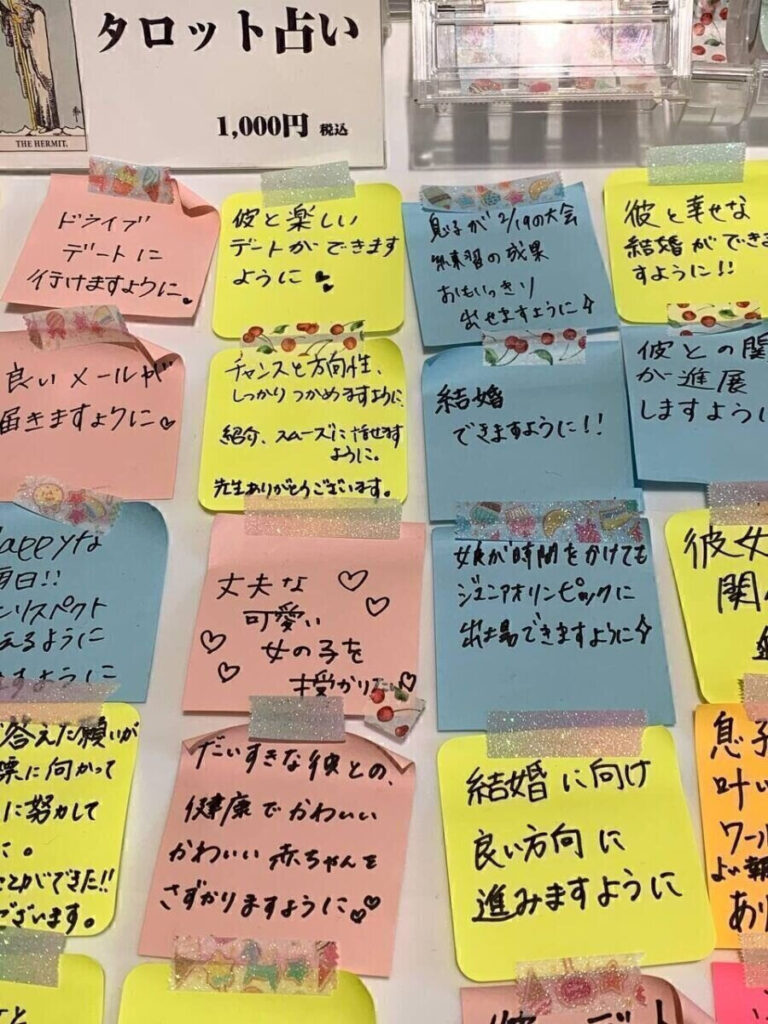 タロット占い
1,000円 税込
THE HERMIT.
ドライブ
デートに
行けますように
彼と楽しい
デートができます
ように
息子が2/19の大会
練習の成果
おもいっきり
出せますように
彼と幸せな
結婚ができま
すように!!
良いメールが
届きますように
チャンスと方向性、
しっかりつかめますように、
紹介、スムーズに話せます
ように。
先生ありがとうございます。
結婚
できますように!!
彼との関
が進展
しますように
な
毎日!!
リスペクト
えるように
ますように
丈夫な
可愛い
女の子を
授かりたい
娘が時間をかけても
ジュニアオリンピックに
出場できますように
彼女
関
だいすきな彼との、
健康でかわいい
かわいい赤ちゃんを
さずかりますように
答えた願いが
に向かって
に努力して
に。
ことができた!!
ございます。
結婚に向け
良い方向に
進みますように
息子
叶い
ワール
よい報
あり
彼 デート